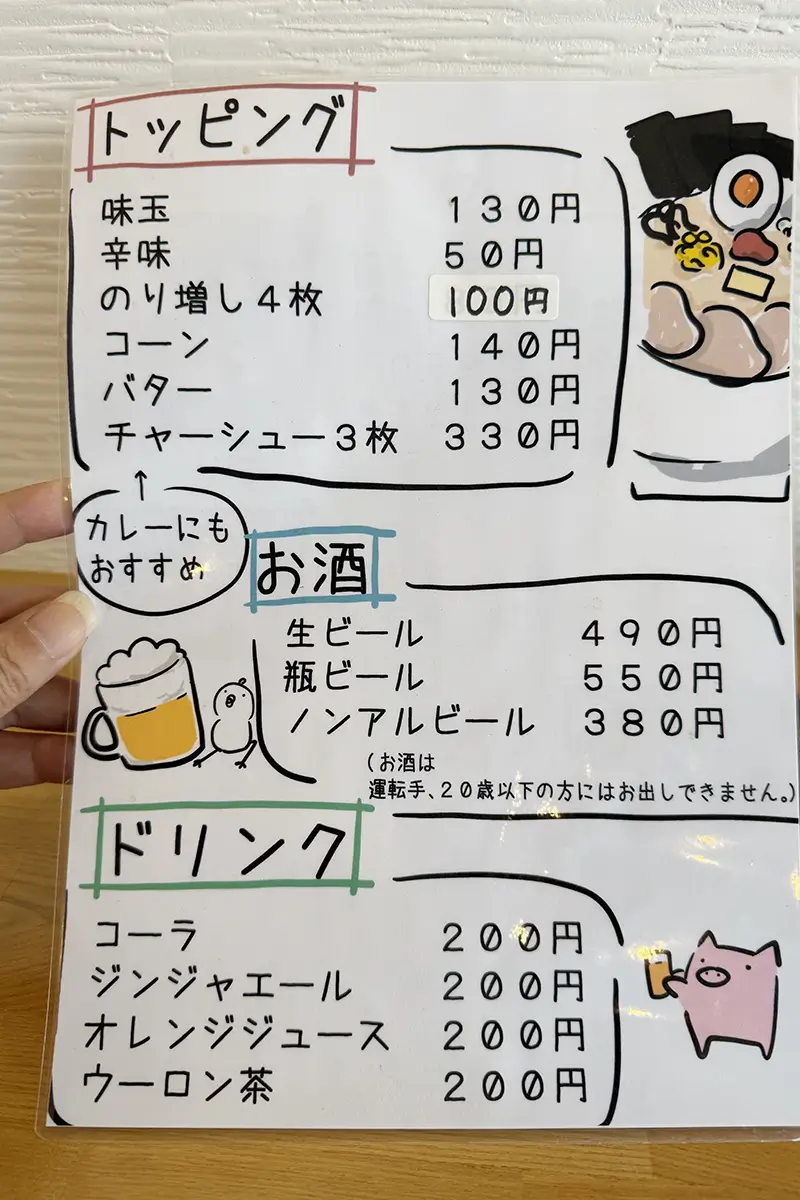 トッピング
味玉 130円
辛味 50円
のり増し4枚 100円
コーン 140円
バター 130円
チャーシュー3枚 330円
↑
カレーにも
おすすめ
お酒
生ビール 490円
瓶ビール 550円
ノンアルビール 380円
(お酒は
運転手、20歳以下の方にはお出しできません。)
ドリンク
コーラ 200円
ジンジャエール 200円
オレンジジュース 200円
ウーロン茶 200円